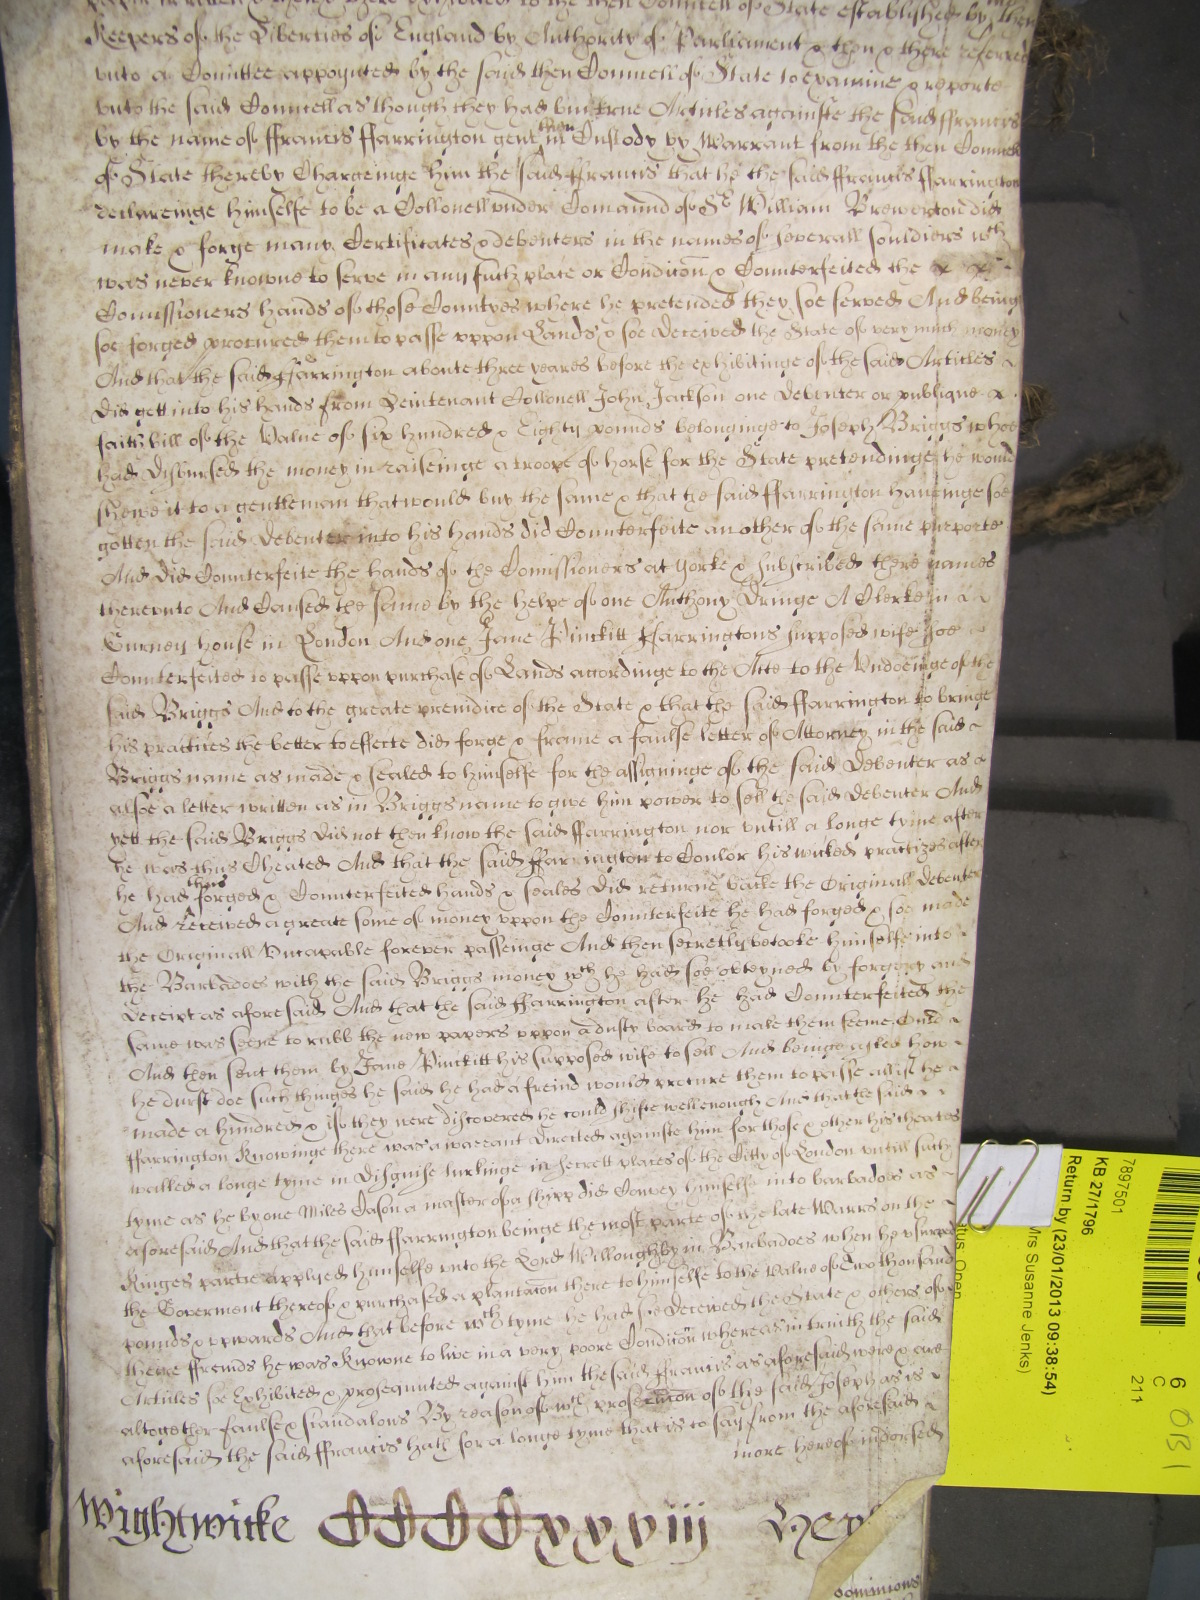 to the then Councell of State established by
Keepers of the Liberties of England by Authority of Parliament & then & there referred
unto a Comittee appoynted by the said then Councell of State to examine & reporte
unto the said Councell as though they had bin true Articles againste the said ffrancis
by the name of ffrancis ffarrington gent then in Custody by Warrant from the then Councell
of State thereby Chargeinge him the said ffrancis that he the said ffrancis ffarrington
declareinge himselfe to be a Collonell under Comaund of Sr William Brewerton did
make & forge many Certificates & debenters in the names of severall souldiers wch
was never knowne to serve in any such place or Condicon & Counterfeited the
Comissioners hands of those Countyes where he pretended they soe served And being
soe forged procured them to passe uppon Lands & soe deceived the State of very much money
And that the said ffarrington aboute three yeares before the exhibitinge of the said Articles
did gett into his hands from Leiutenant Collonell John Jackson one Debenter or publique
faith bill of the Value of six hundred & Eighty pounds belonginge to Joseph Briggs whoe
had disbursed the money in raiseinge a troope of horse for the State pretendinge he would
shewe it to a gentleman that would buy the same & that he said ffarrington haveinge soe
gotten the said Debenter into his hands did Counterfeite an other of the same purporte
And did Counterfeite the hands of the Comissioners at Yorke & subscribed there names
thereunto And Caused the same by the helpe of one Anthony Dringe A Clerke in
Gurney house in London And one Jane Pinckitt ffarringtons supposed wife soe
Counterfeited to passe uppon purchase of Lands accordinge to the Acte to the Undoeinge of the
said Briggs And to the greate preiudice of the State & that the said ffarrington to bringe
his practices the better to effecte did forge & frame a faulse letter of Attorney in the said
Briggs name as made & sealed to himselfe for the assigninge of the said Debenter as
alsoe a letter written as in Briggs name to give him power to sell the said debenter And
yett the said Briggs did not then know the said ffarrington nor untill a longe tyme after
he was thus Cheated And that the said ffarrington to Coulor his wicked practizes after
he had thus forged & Counterfeited hands & seales did returne backe the Originall debenter
And received a greate some of money uppon the Counterfeite he had forged & soe made
the Originall Uncapable forever passeinge And then secretly betooke himselfe into
the Barbadoes with the said Briggs money wch he had soe obteyned by forgery and
deceipt as aforesaid And that the said ffarrington after he had Counterfeited the
same was seene to rubb the new papers uppon a dusty board to make them seeme Ould
And then sent them by Jane Pinckitt his supposed wife to sell And beinge asked how
he durst doe such thinges he said he had a freind would procure them to passe albeit he
made a hundred & if they were discovered he could shifte well enough And that the said
ffarrington Knowinge there was a warrant directed againste him for those & other his cheates
walked a longe tyme in Disguise lurkinge in secrett places of the Citty of London untill such
tyme as he by one Miles Cason a master of a shipp did Convey himselfe into barbadoes as
aforesaid And that the said ffarrington beinge the most parte of the late Warrs on the
Kinges partie applyed himselfe unto the Lord Willoughby in Barbadoes when he usurped
the Goverment thereof & purchased a plantacon there to himselfe to the Value of Two thousand
pounds & upwards And that before wch tyme he had soe deceived the State & others of
theire ffreinds he was Knowne to live in a very poore Condicon whereas in truith the said
Articles soe Exhibited & prosequuted against him the said ffrancis as aforesaid were & are
altogether faulse & scandalous By reason of wch prosecucon of the said Joseph as is
aforesaid the said ffrancis hath for a longe tyme that is to say from the aforesaid
more hereof indorsed
Wightwicke CCCCxxxviij
dominions
7897501
KB 27/1796
Return by (23/01/2013 09:38:54)
Mrs Susanne Jenks)
Open
6
C
211
OB 1